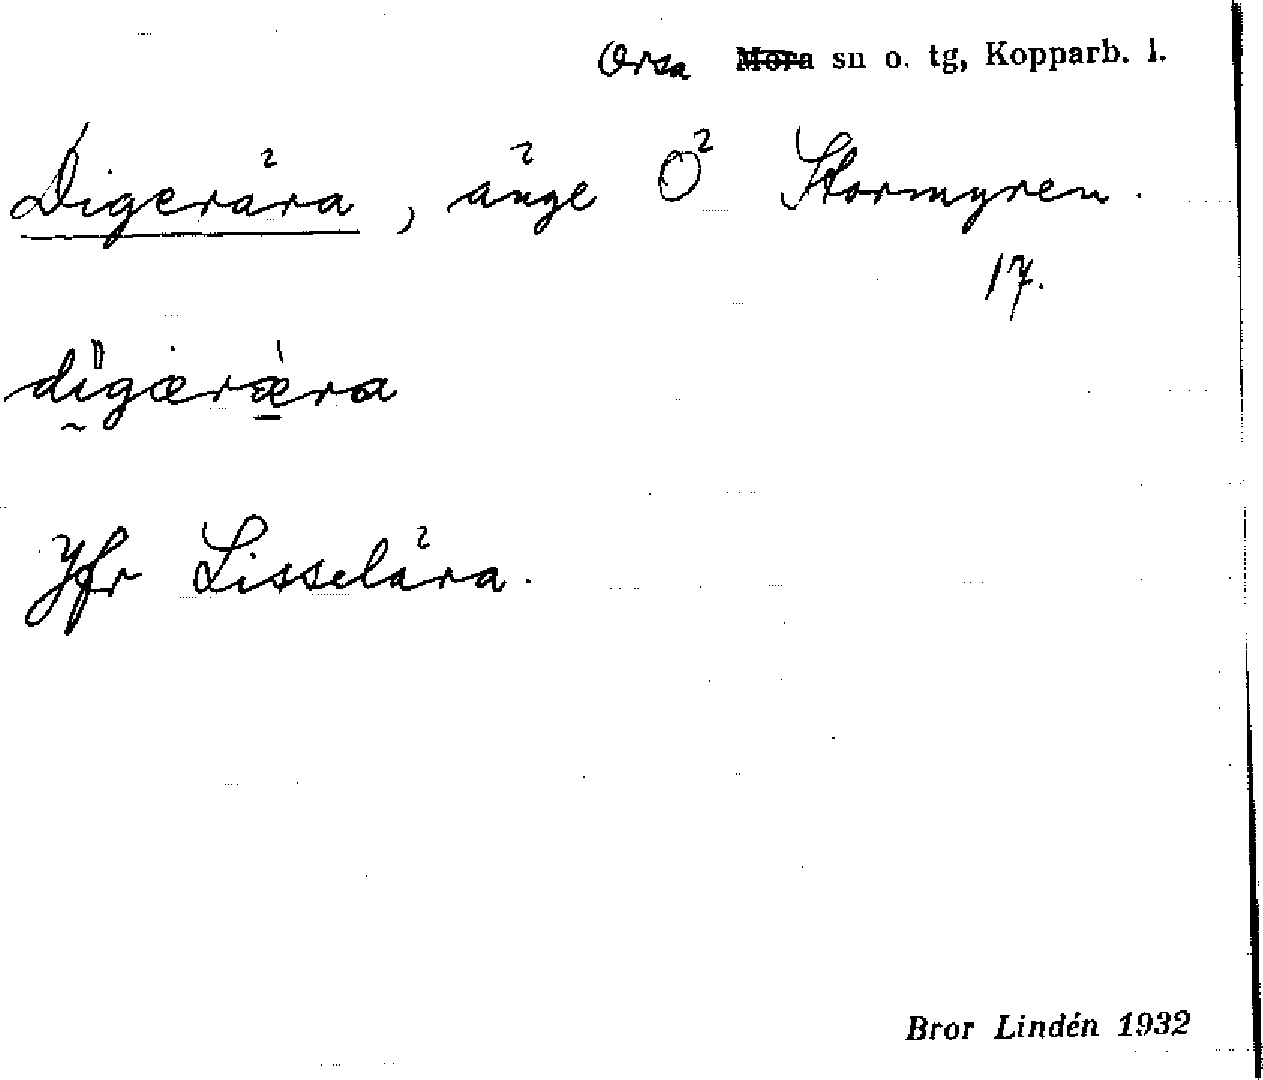 Orsa Mora sn o. tg, Kopparb. l.
Digerära, änge Ö Stormyren.
17.
digæræra
Jfr Lisselära.
Bror Lindén 1932